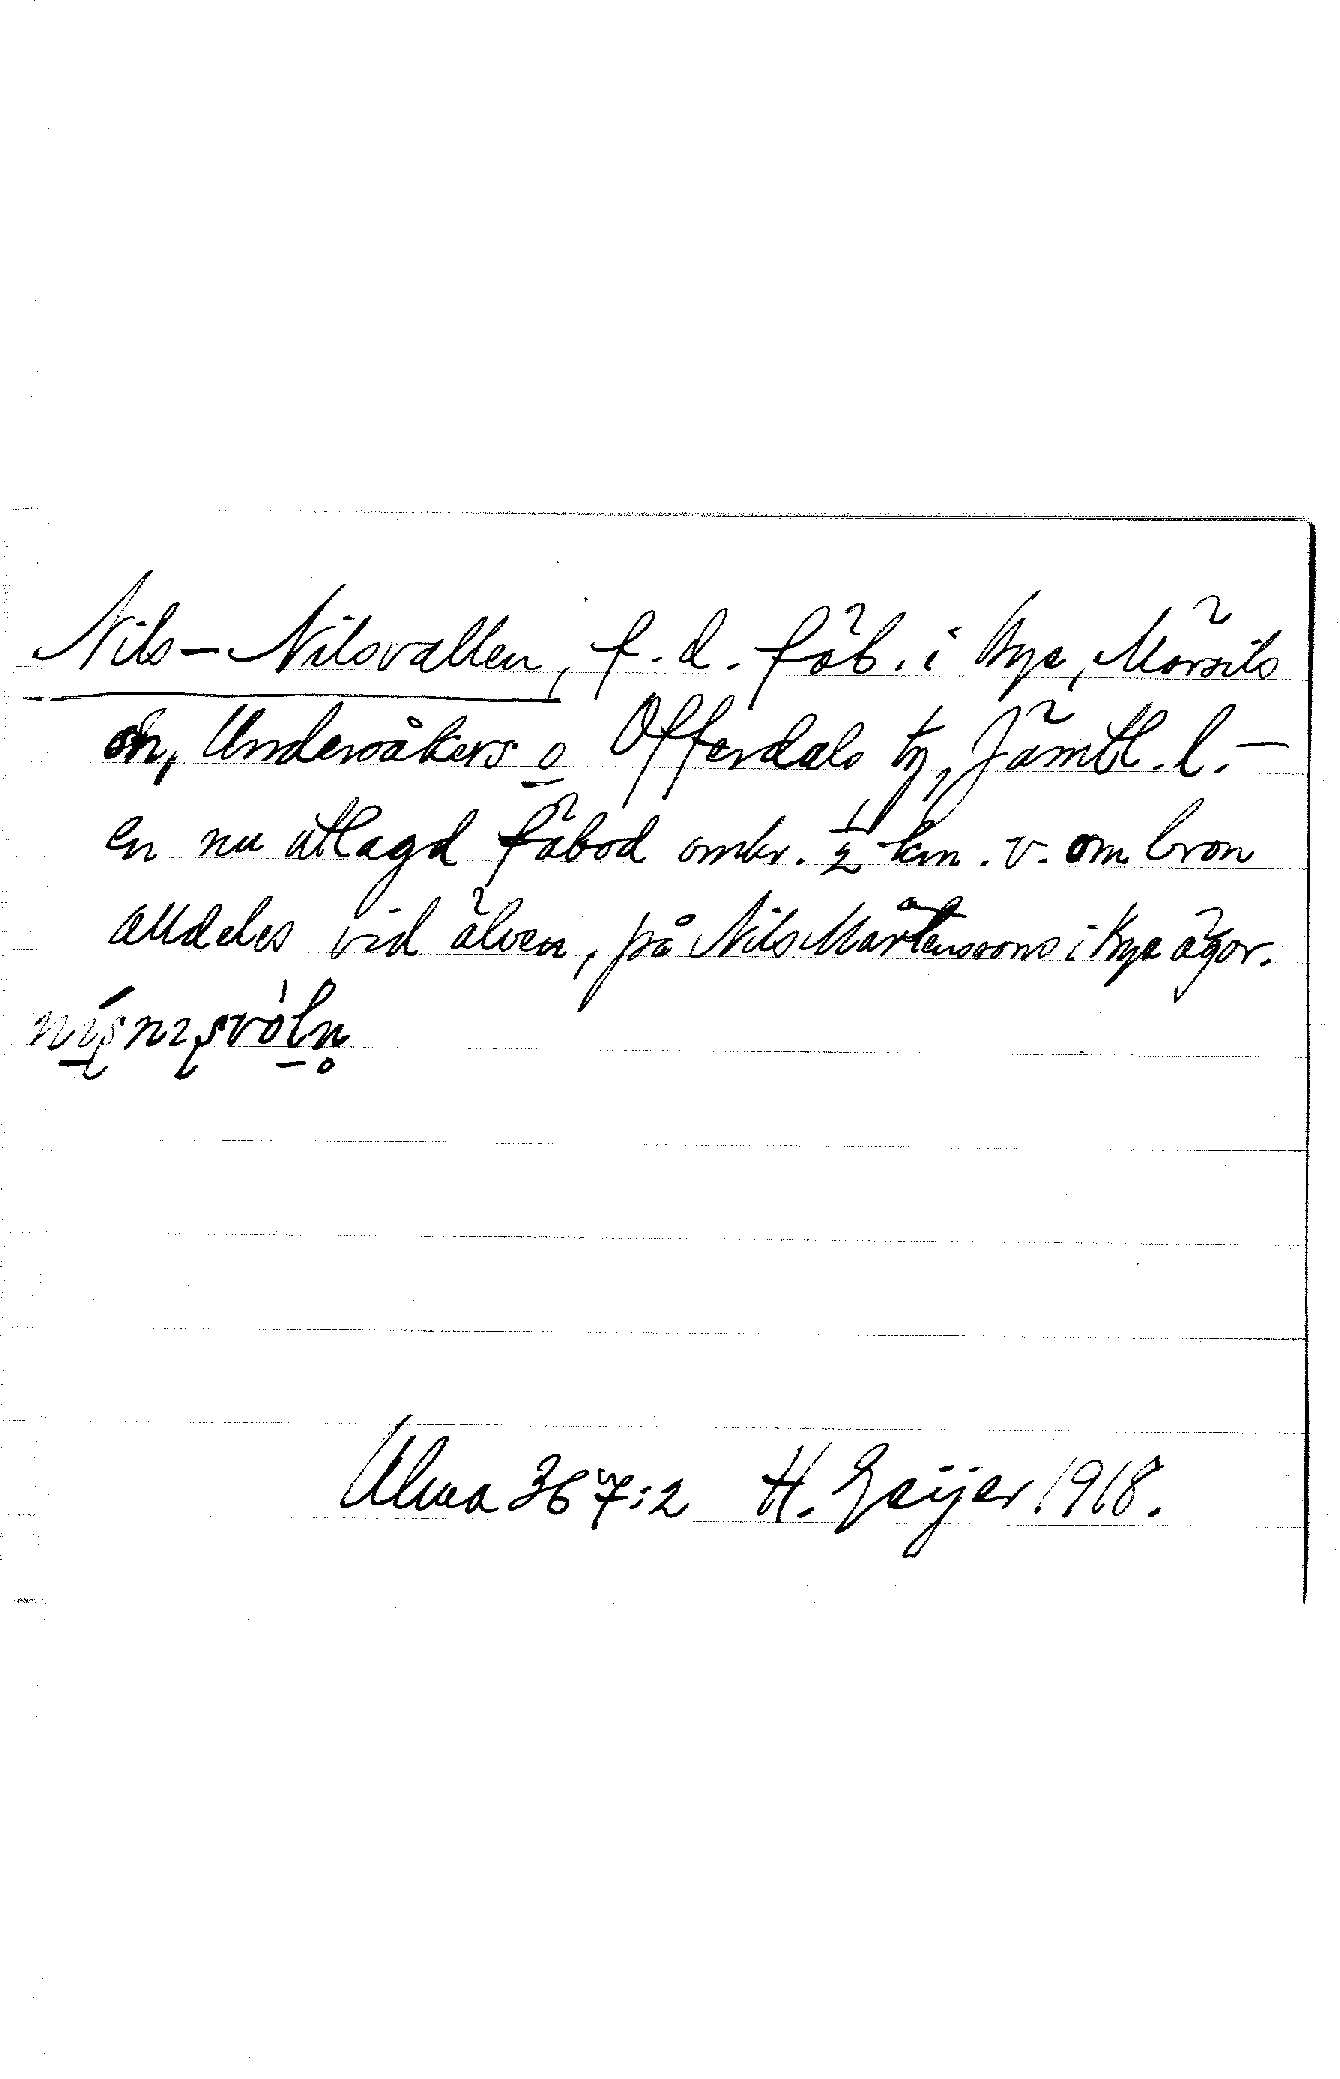 Nils-Nilsvallen, f.d. fäb. i Bye, Mörsils
sn, Undersåkers o Offerdals tg, Jämtl. l. —
en nu utlagd fäbod omkr. ½ km. v. om bron
alldeles vid älven, på Nils Mårtenssons i Bye ägor.
Ulma 367:2 H. Geijer 1918.